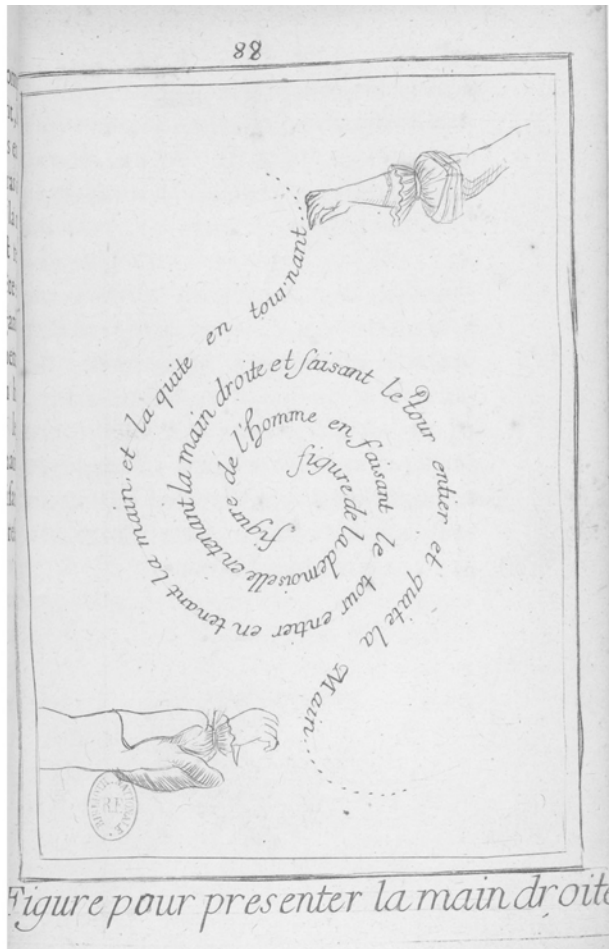 88
figure de l'homme en faisant le tour entier en tenant la main et la quite en tournant
figure de la demoiselle en tenant la main droite et faisant le tour entier et quite la Main
BIBLIOTHEQUE NATIONALE
R.F.
Figure pour presenter la main droite